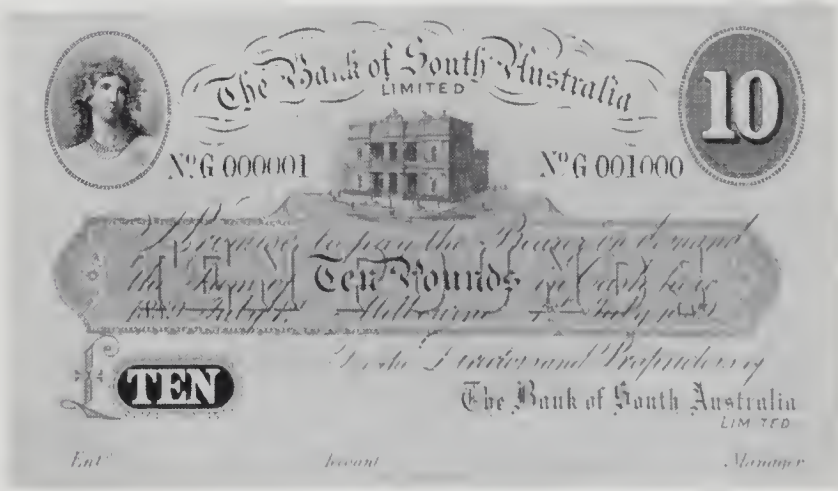 The Bank of South Australia
LIMITED
10
Nº G 000001 Nº G 001000
I Promise to pay the Bearer on demand
the Sum of Ten Pounds in Cash here
Melbourne July
TEN POUNDS
For the Directors and Proprietors of
£ TEN
The Bank of South Australia
LIMITED
Entd Manager